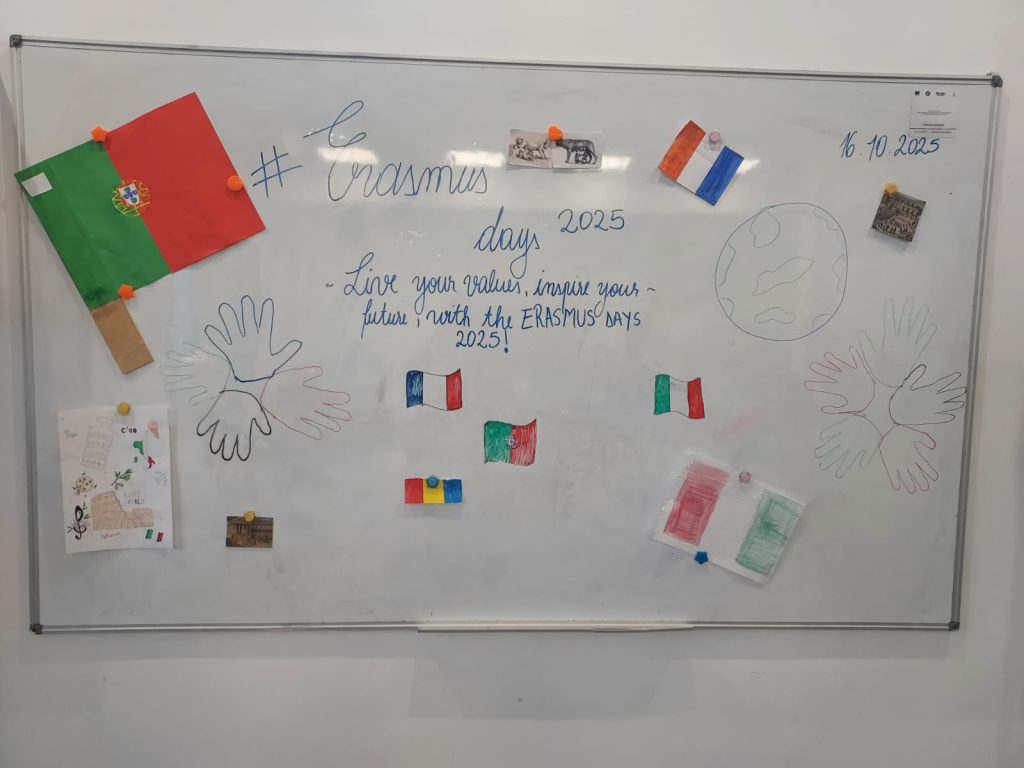 # Erasmus
16.10.2025
days 2025
~ Live your values, inspire your ~
future, with the ERASMUS DAYS
2025!
Ciao